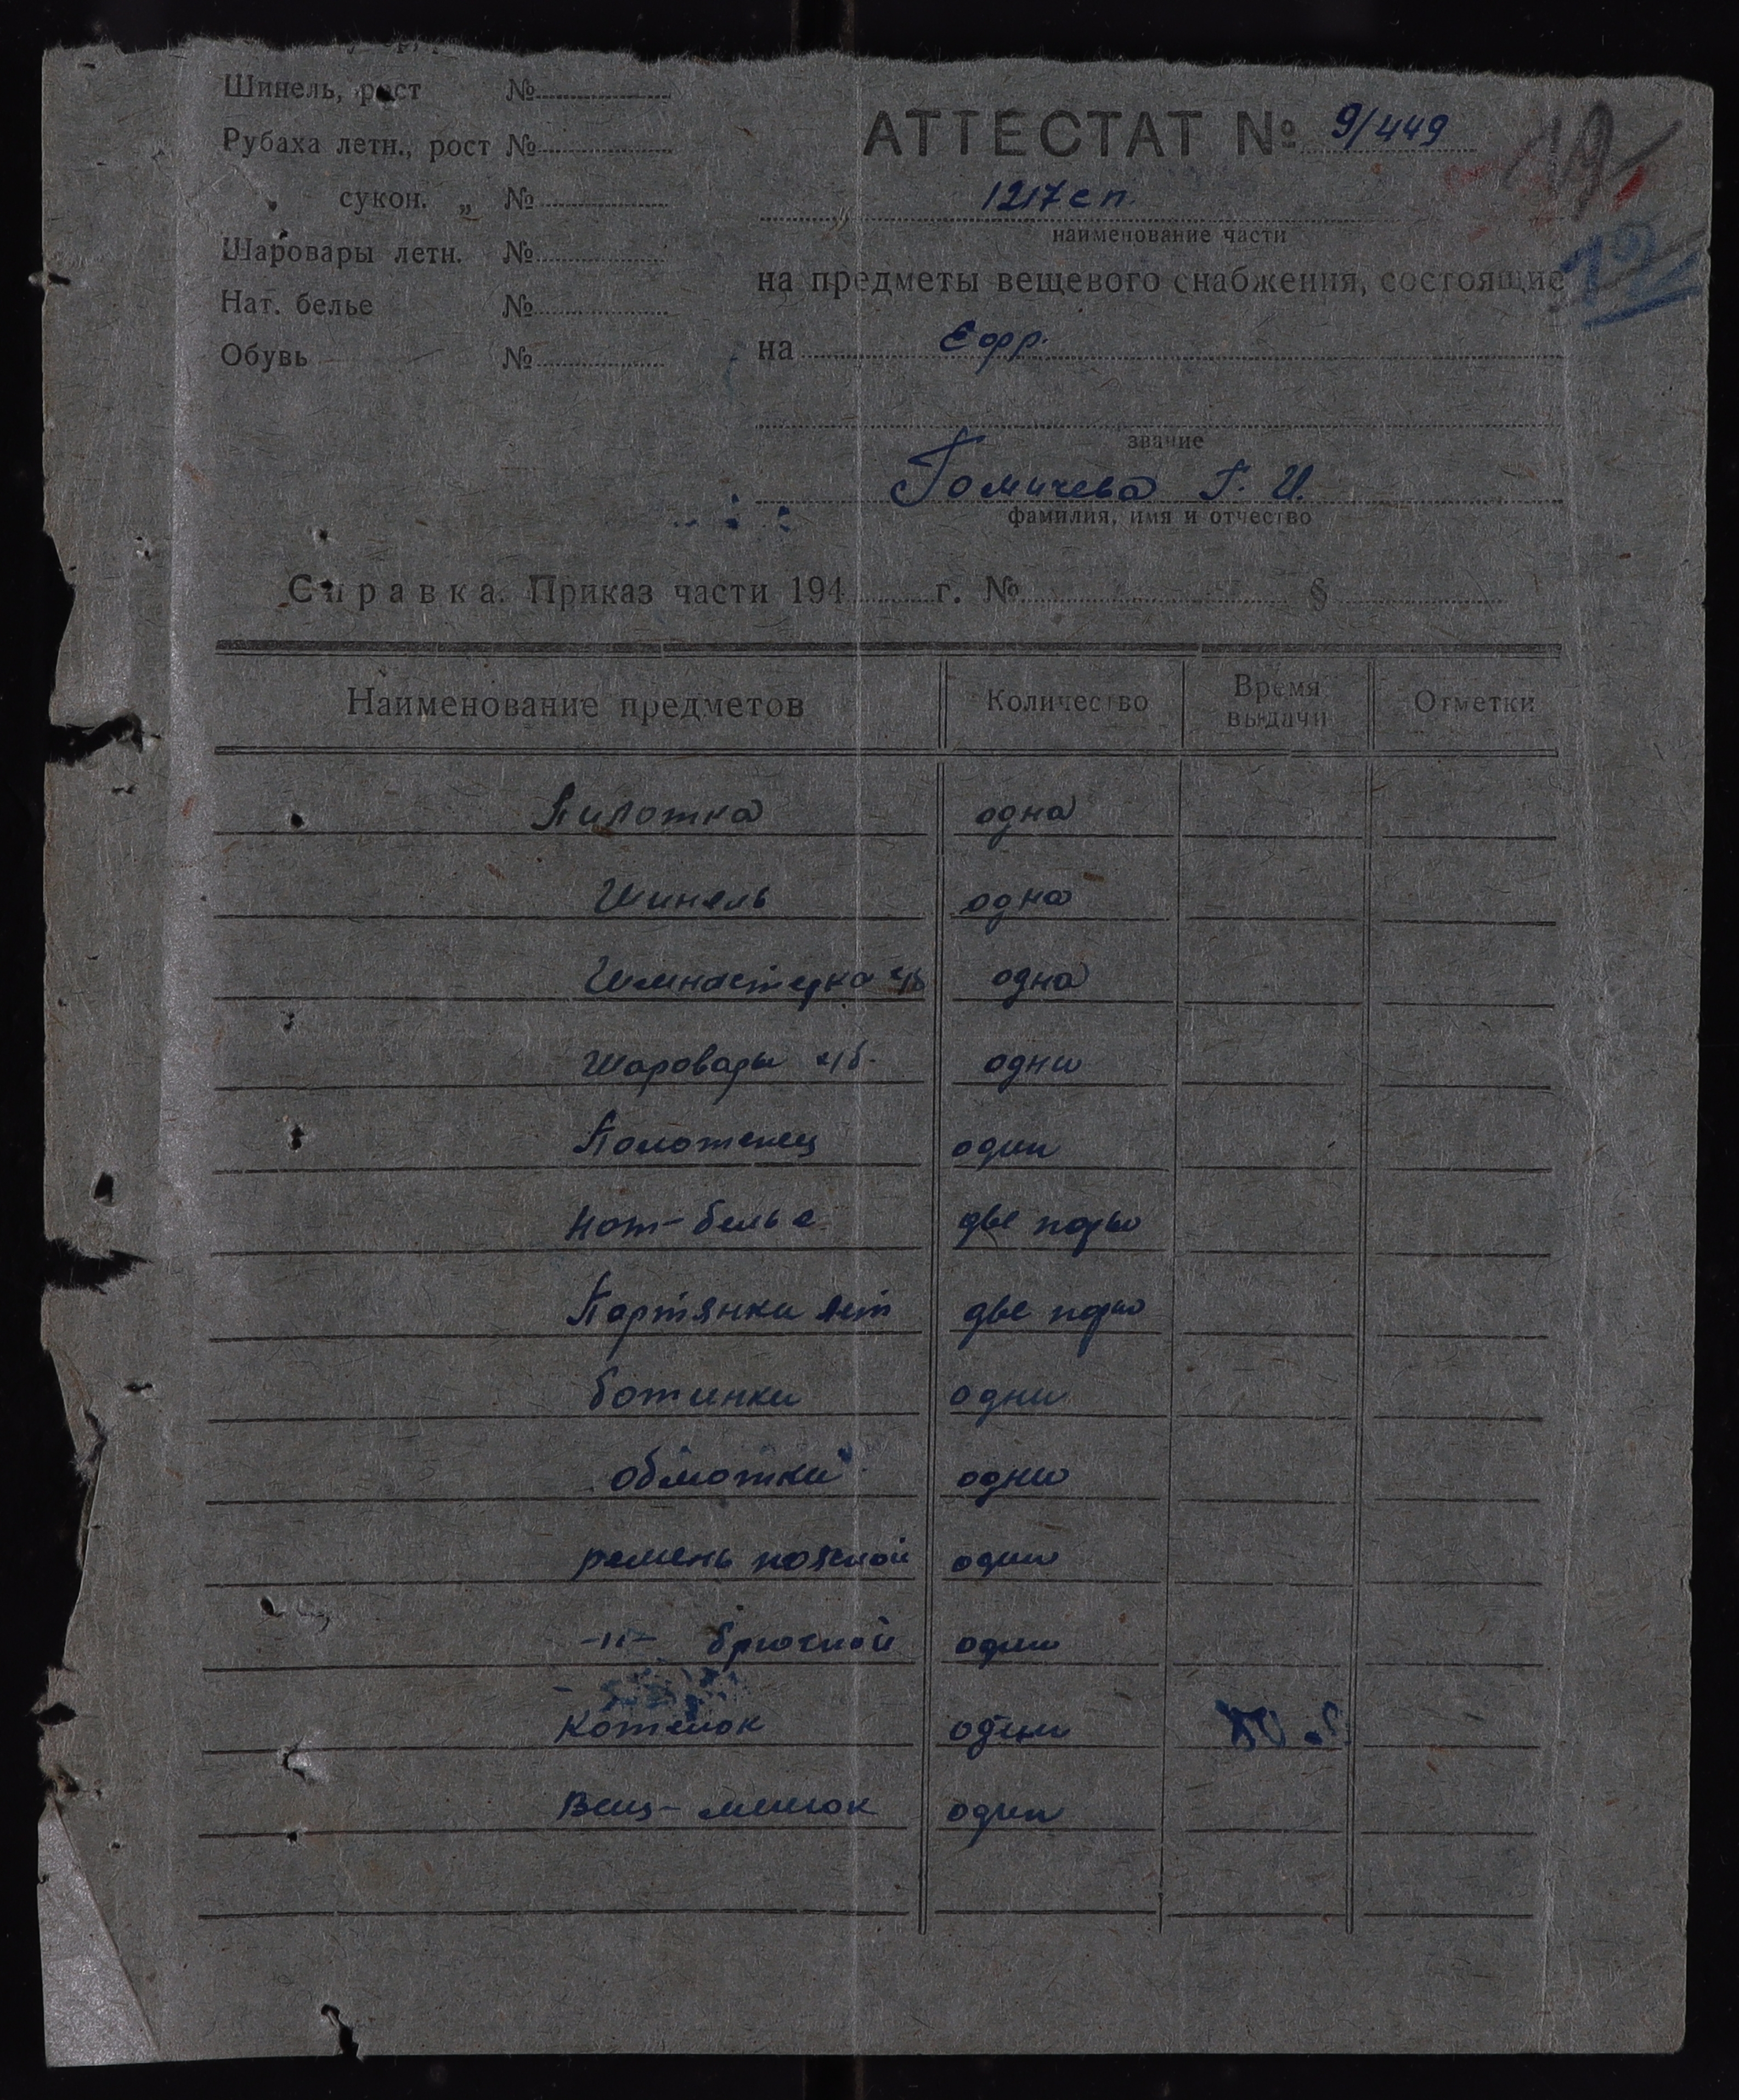 Шинель, рост №
Рубаха летн., рост №
сукон. „ №
Шаровары летн. №
Нат. белье №
Обувь №
АТТЕСТАТ № 9/449
19
1217 сп.
наименование части
19
на предметы вещевого снабжения, состоящие
на Ефр.
звание
Гомичева Г. И.
фамилия, имя и отчество
Справка. Приказ части 194 г. № §
Наименование предметов Количество Время выдачи Отметки
Пилотка одна
Шинель одна
Гимнастерка х/б одна
Шаровары х/б. одни
Полотенец один
Нат-белье две пары
Портянки лет две пары
ботинки одни
обмотки одни
ремень поясной один
-"- брючной один
Котелок один
Вещ-мешок один